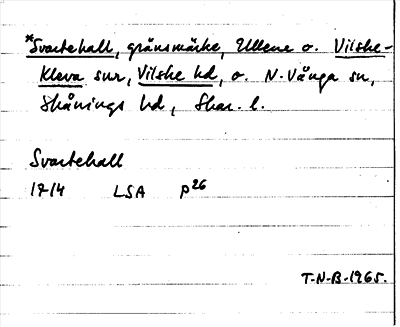 *Svartehall, gränsmärke, Ullene o. Vilske-
Kleva snr, Vilske hd, o. N. Vånga sn,
Skånings hd, Skar. l.
Svartehall
1714 LSA P26
T-N-B-1965.